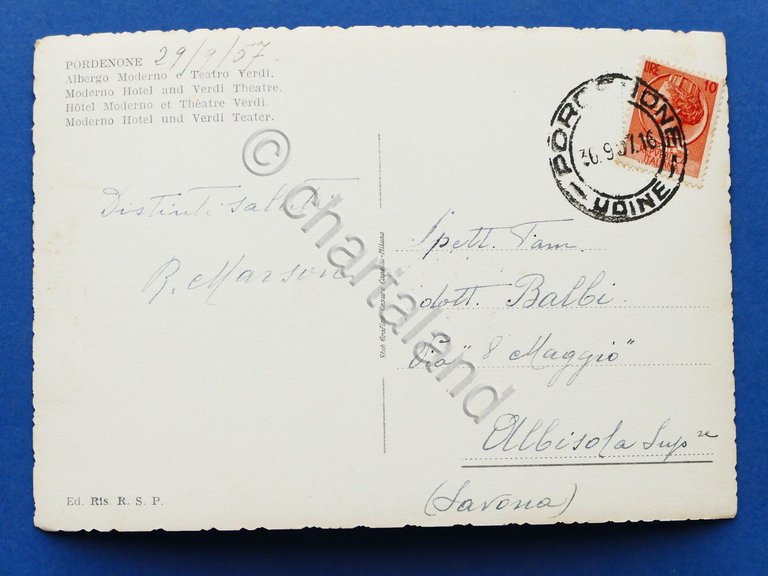 PORDENONE 29/9/57.
Albergo Moderno e Teatro Verdi.
Moderno Hotel and Verdi Theatre.
Hôtel Moderno et Thèatre Verdi.
Moderno Hotel und Verdi Teater.
Distinti saluti
R. Marson
LIRE 10
PORDENONE
30.9.57.16
UDINE
Spett. Fam.
dott. Balbi.
Via "8 Maggio"
Albisola Supre
(Savona)
Stab Grafico Cesare Capello-Milano
Ed. Ris. R. S. P.
© Chartaland